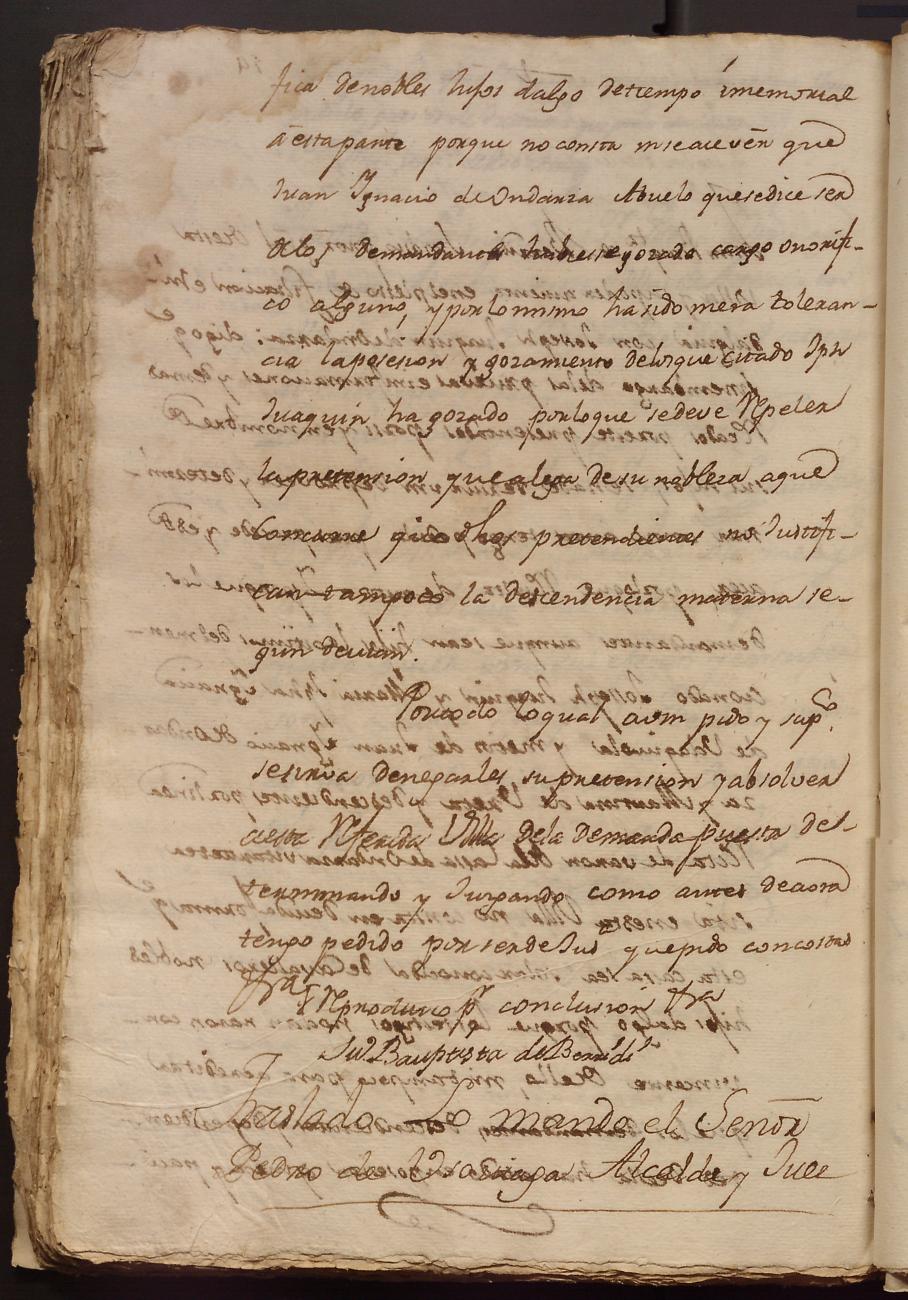 fica de nobles hijos dalgo de tiempo imemorial
a esta parte porque no consta ni se a ce ver que
Juan Ignacio de Ondarza Abuelo que se dice ser
de los demandantes hubiese gozado cargo onorifi-
co alguno, y por lo mismo ha sido mera toleran-
cia la posesion y gozamiento de los que citado Jph
Juaquin ha gozado por lo que se deve Repeler
la pretension que alega de su nobleza aque
concurre que dhos pretendientes no Justifi-
can tampoco la descendencia materna se-
gun devian.
Por todo lo qual a vm pido y supco.
se sirva denegarles su pretension y absolver
a esta Referida Villa de la demanda puesta de-
terminando y Juzgando como antes de aora
tengo pedido por ser de Jusa que pido con costas
Reproduzco pa conclusion
Jun Bauptista de
Traslado lo mando el Señor
Pedro de Alcalde y Juez